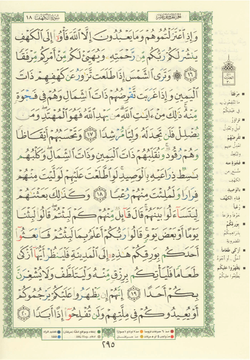 سُورَةُ الكَهْفِ ١٨
وَإِذِ ٱعْتَزَلْتُمُوهُمْ وَمَا يَعْبُدُونَ إِلَّا ٱللَّهَ فَأْوُۥٓا۟ إِلَى ٱلْكَهْفِ
يَنشُرْ لَكُمْ رَبُّكُم مِّن رَّحْمَتِهِۦ وَيُهَيِّئْ لَكُم مِّنْ أَمْرِكُم مِّرْفَقًا
١٦ ۞ وَتَرَى ٱلشَّمْسَ إِذَا طَلَعَت تَّزَٰوَرُ عَن كَهْفِهِمْ ذَاتَ
ٱلْيَمِينِ وَإِذَا غَرَبَت تَّقْرِضُهُمْ ذَاتَ ٱلشِّمَالِ وَهُمْ فِى فَجْوَةٍ
مِّنْهُ ذَٰلِكَ مِنْ ءَايَٰتِ ٱللَّهِ مَن يَهْدِ ٱللَّهُ فَهُوَ ٱلْمُهْتَدِ وَمَن
يُضْلِلْ فَلَن تَجِدَ لَهُۥ وَلِيًّا مُّرْشِدًا ١٧ وَتَحْسَبُهُمْ أَيْقَاظًا
وَهُمْ رُقُودٌ وَنُقَلِّبُهُمْ ذَاتَ ٱلْيَمِينِ وَذَاتَ ٱلشِّمَالِ وَكَلْبُهُم
بَٰسِطٌ ذِرَاعَيْهِ بِٱلْوَصِيدِ لَوِ ٱطَّلَعْتَ عَلَيْهِمْ لَوَلَّيْتَ مِنْهُمْ
فِرَارًا وَلَمُلِئْتَ مِنْهُمْ رُعْبًا ١٨ وَكَذَٰلِكَ بَعَثْنَٰهُمْ
لِيَتَسَآءَلُوا۟ بَيْنَهُمْ قَالَ قَآئِلٌ مِّنْهُمْ كَمْ لَبِثْتُمْ قَالُوا۟ لَبِثْنَا
يَوْمًا أَوْ بَعْضَ يَوْمٍ قَالُوا۟ رَبُّكُمْ أَعْلَمُ بِمَا لَبِثْتُمْ فَٱبْعَثُوٓا۟
أَحَدَكُم بِوَرِقِكُمْ هَٰذِهِۦٓ إِلَى ٱلْمَدِينَةِ فَلْيَنظُرْ أَيُّهَآ أَزْكَىٰ
طَعَامًا فَلْيَأْتِكُم بِرِزْقٍ مِّنْهُ وَلْيَتَلَطَّفْ وَلَا يُشْعِرَنَّ
بِكُمْ أَحَدًا ١٩ إِنَّهُمْ إِن يَظْهَرُوا۟ عَلَيْكُمْ يَرْجُمُوكُمْ
أَوْ يُعِيدُوكُمْ فِى مِلَّتِهِمْ وَلَن تُفْلِحُوٓا۟ إِذًا أَبَدًا ٢٠
٢٩٥